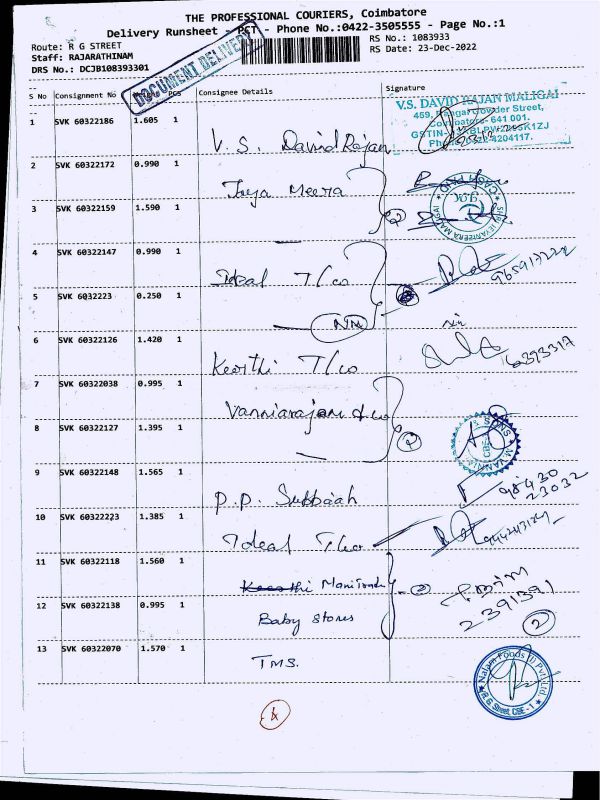 THE PROFESSIONAL COURIERS, Coimbatore
Delivery Runsheet - PCT - Phone No.:0422-3505555 - Page No.:1
Route: R G STREET
RS No.: 1083933
Staff: RAJARATHINAM
RS Date: 23-Dec-2022
DRS No.: DCJB108393301
DOCUMENT DELIVERY
S No Consignment No PCS Consignee Details Signature
V.S. DAVID RAJAN MALIGAI
Street,
Coimbatore- 641 001.
1 SVK 60322186 1.605 1 V. S. David Rajan
2 SVK 60322172 0.990 1 Jeya Meera
3 SVK 60322159 1.590 1 2
CASH PAID
4 SVK 60322147 0.990 1 Ideal T/co
5 SVK 6032223 0.250 1
6 SVK 60322126 1.420 1 Keerthi T/co
7 SVK 60322038 0.995 1 Vanniarajan & co
8 SVK 60322127 1.395 1 2
9 SVK 60322148 1.565 1 P.P. Subbaiah
98430
23032
10 SVK 60322223 1.385 1 Ideal T/co
11 SVK 60322118 1.560 1
12 SVK 60322138 0.995 1 Baby Stores
2391391
2
13 SVK 60322070 1.570 1 TMS.
Nalam Foods (I) Pvt Ltd.
R.G Street, CBE - 1